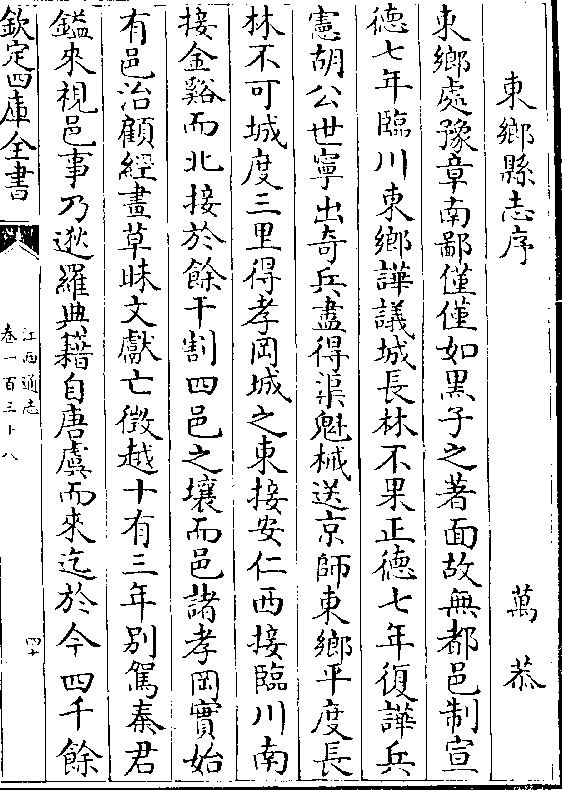 東鄉縣志序 萬恭
東鄉處豫章南鄙僅僅如黒子之著面故無都邑制宣
德七年臨川東鄉譁議城長林不果正德七年復譁兵
憲胡公世寧出奇兵盡得渠魁械送京師東鄉平度長
林不可城度三里得孝岡城之東接安仁西接臨川南
接金谿而北接於餘干割四邑之壤而邑諸孝岡實始
有邑治顧經畫草昧文獻亡徵越十有三年別駕秦君
鎰來視邑事乃逖羅典籍自唐虞而來迄於今四千餘
欽定四庫全書
江西通志
卷一百三十八
四十